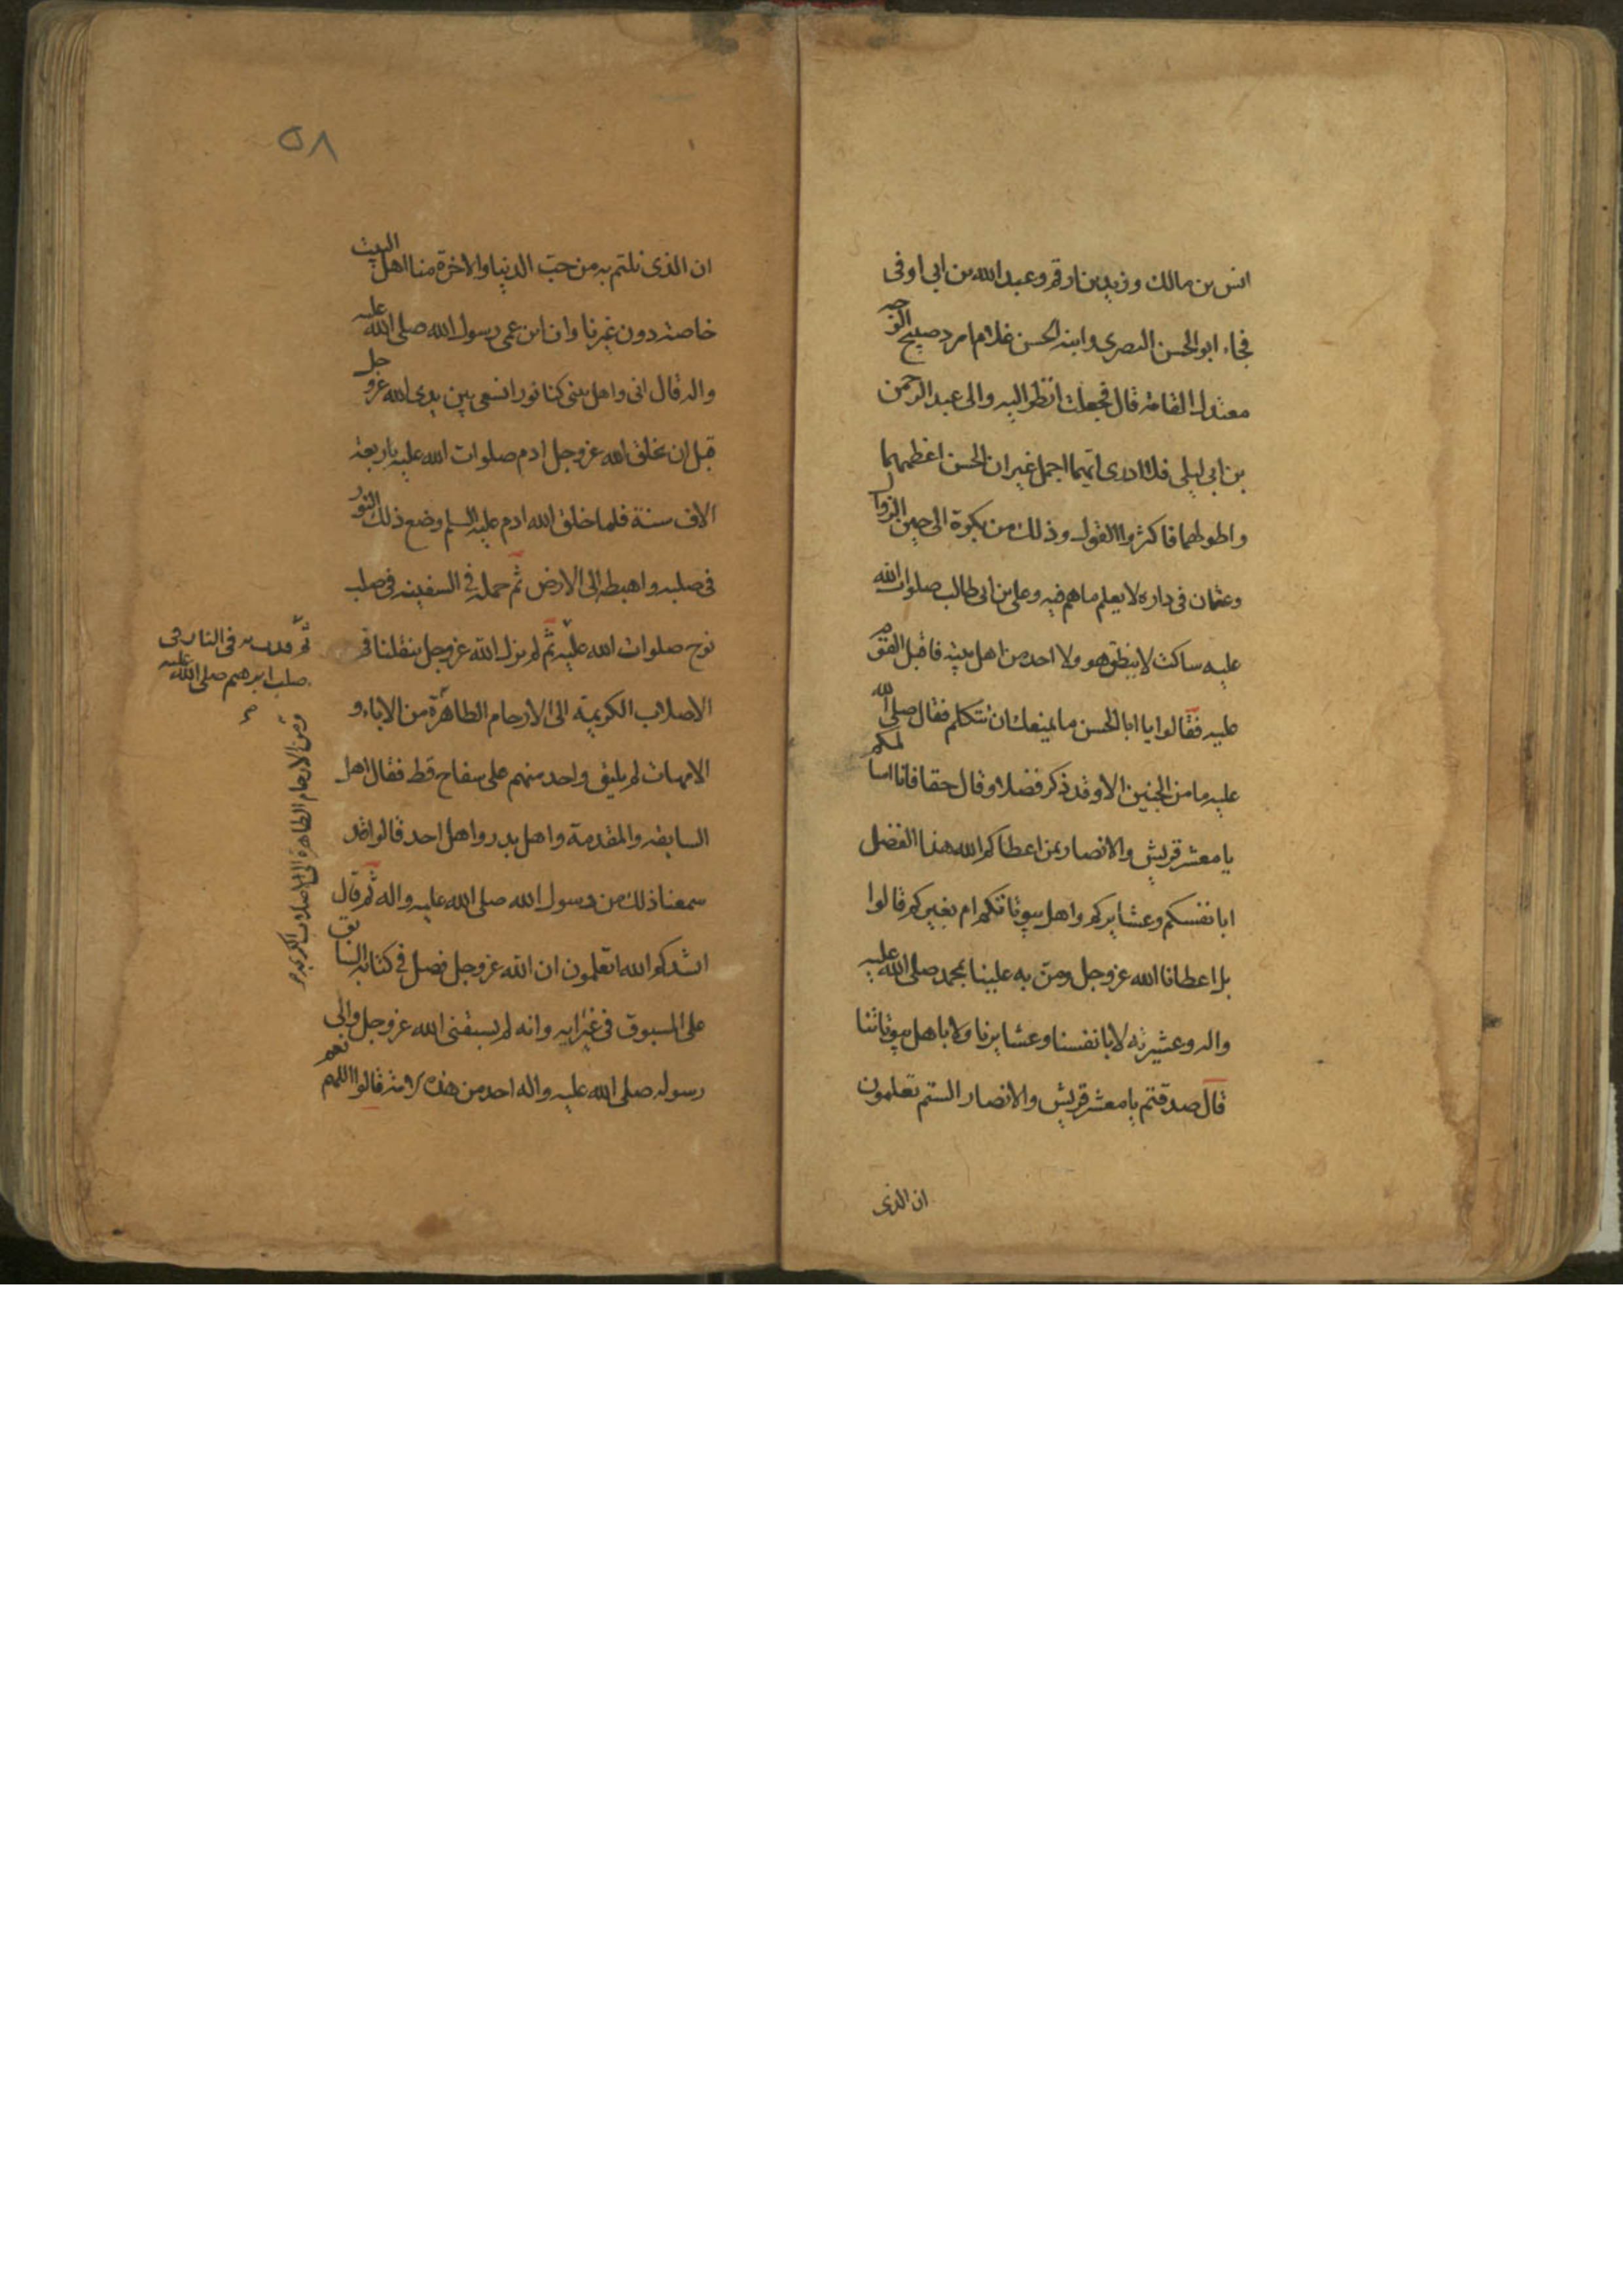 انس بن مالك وزيد بن ارقم وعبد الله بن ابي اوفى
فجاء ابو الحسن البصري وابنه الحسن غلام امرد صبيح الوجه
معتدل القامة قال فجعلت انظر اليه والى عبد الرحمن
بن ابي ليلى فلا ادرى ايهما اجمل غير ان الحسن اعظمهما
واطولهما فاكثروا القول وذلك من بكرة الى حين الزوال
وعثمان في داره لا يعلم ما هم فيه وعلى بن ابي طالب صلوات الله
عليه ساكت لا ينطق هو ولا احد من اهل بيته فاقبل القوم
عليه فقالوا يا ابا الحسن ما يمنعك ان تتكلم فقال صلى الله
عليه ما من الحيين الا وقد ذكر فضلا وقال حقا فانا اسألكم
يا معشر قريش والانصار بمن اعطاكم الله هذا الفضل
ابانفسكم وعشايركم واهل بيوتاتكم ام بغيركم قالوا
بل اعطانا الله عز وجل ومن به علينا بمحمد صلى الله عليه
واله وعشيرته لا بانفسنا وعشايرنا ولا باهل بيوتاتنا
قال صدقتم يا معشر قريش والانصار الستم تعلمون
ان الذى
٥٨
ان الذى نلتم به من خير الدنيا والاخرة منا اهل البيت
خاصة دون غيرنا وان ابن عمى رسول الله صلى الله عليه
واله قال انى واهل بيتى كنا نورا نسعى بين يدى الله عز وجل
قبل ان يخلق الله عز وجل ادم صلوات الله عليه باربعة
الاف سنة فلما خلق الله ادم عليه السلم وضع ذلك النور
فى صلبه واهبطه الى الارض ثم حمله في السفينه فى صلب
نوح صلوات الله عليه ثم لم يزل الله عز وجل ينقلنا فى
الاصلاب الكريمة الى الارحام الطاهرة من الاباء و
الامهات لم يلتق واحد منهم على سفاح قط فقال اهل
السابقه والمقدمة واهل بدر واهل احد قالوا قد
سمعنا ذلك من رسول الله صلى الله عليه واله ثم قال
انشدكم الله اتعلمون ان الله عز وجل فضل في كتابه السابق
على المسبوق في غير اية وانه لم يسبقنى الله عز وجل والى
رسوله صلى الله عليه واله احد من هذه الامة قالوا اللهم نعم
ثم قذف به فى النار فى
صلب ابرهيم صلى الله عليه
ومن الارحام الطاهرة الى الاصلاب الكريمة